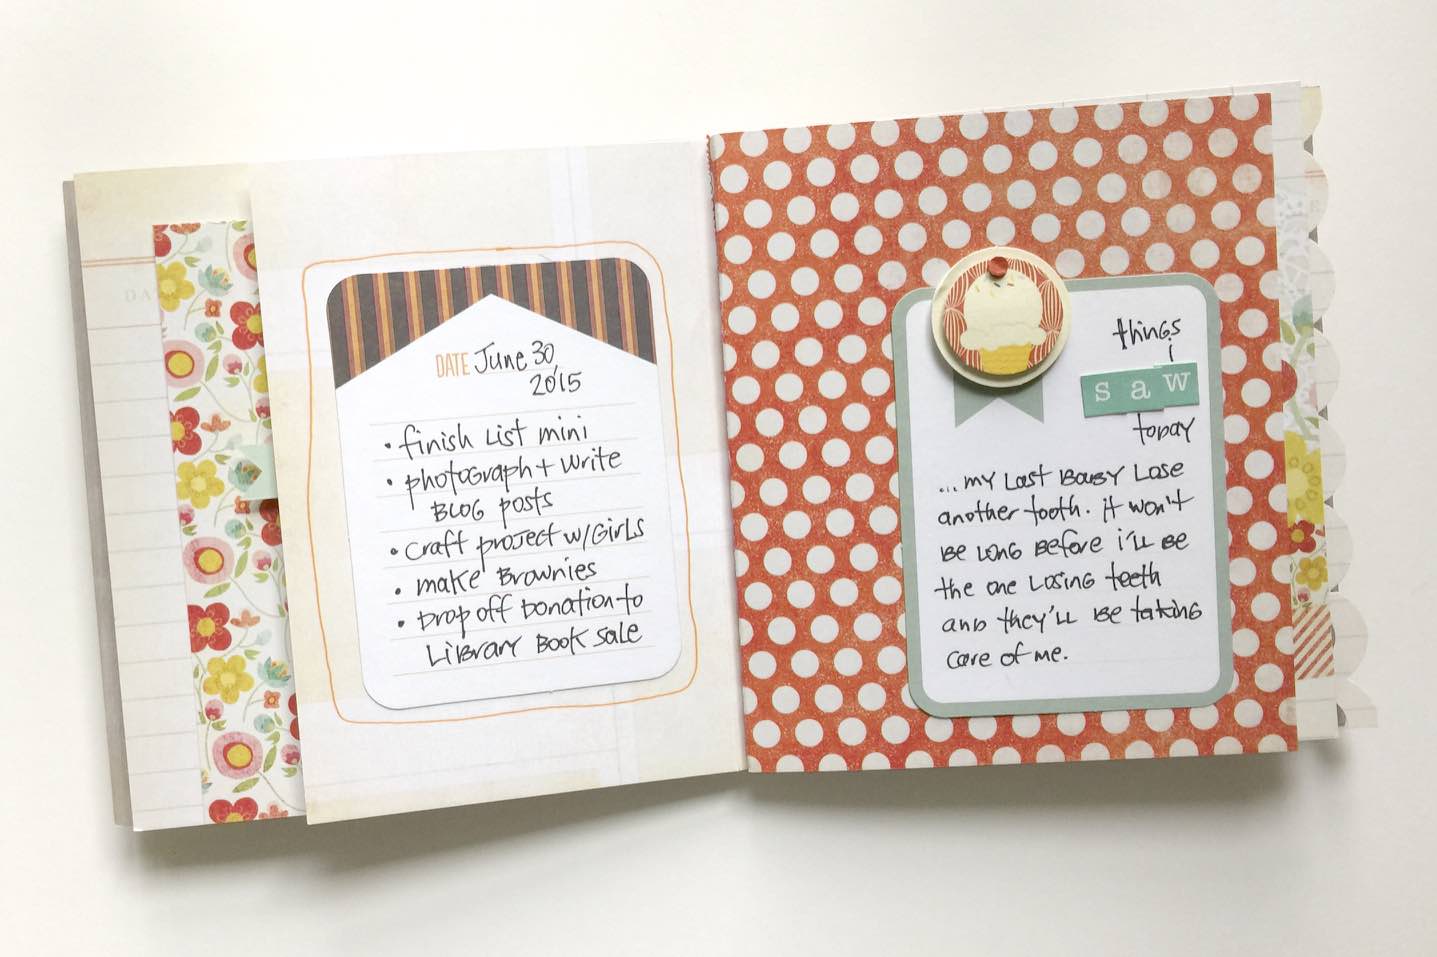 DA
DATE June 30,
2015
• finish List mini
• photograph + write
BLOG posts
• craft project w/Girls
• make Brownies
• Drop off Donation to
Library Book Sale
things
i
saw
today
...my last Baby Lose
another tooth. it won't
be long before i'll be
the one losing teeth
and they'll be taking
care of me.